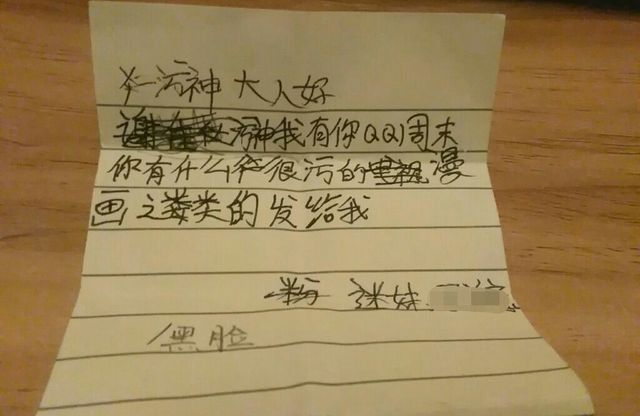 污神大人好
污神我有你QQ周末
你有什么很污的漫
画之类的发给我
迷妹
黑脸